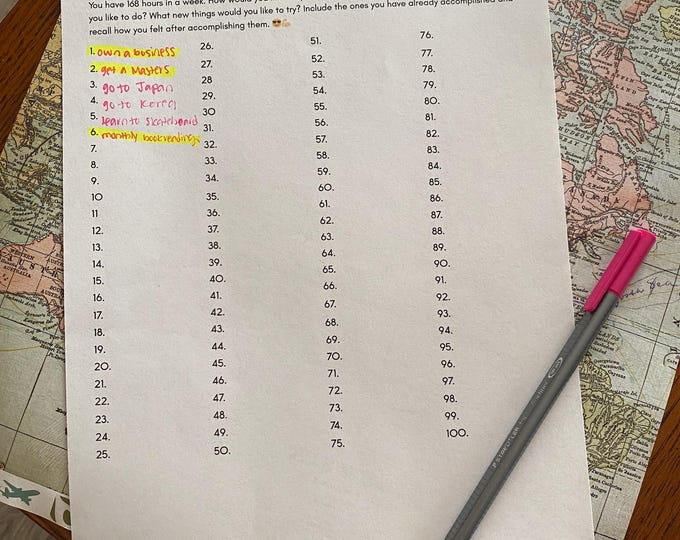 You have 168 hours in a week. How would
you like to do? What new things would you like to try? Include the ones you have already accomplished and
recall how you felt after accomplishing them. 😎💪🏼
1. own a business
2. get a masters
3. go to Japan
4. go to Korea
5. learn to skateboard
6. monthly
7.
8.
9.
10
11
12.
13.
14.
15.
16.
17.
18.
19.
20.
21.
22.
23.
24.
25.
26.
27.
28
29.
30
31.
32.
33.
34.
35.
36.
37.
38.
39.
40.
41.
42.
43.
44.
45.
46.
47.
48.
49.
50.
51.
52.
53.
54.
55.
56.
57.
58.
59.
60.
61.
62.
63.
64.
65.
66.
67.
68.
69.
70.
71.
72.
73.
74.
75.
76.
77.
78.
79.
80.
81.
82.
83.
84.
85.
86.
87.
88.
89.
90.
91.
92.
93.
94.
95.
96.
97.
98.
99.
100.
STAEDTLER